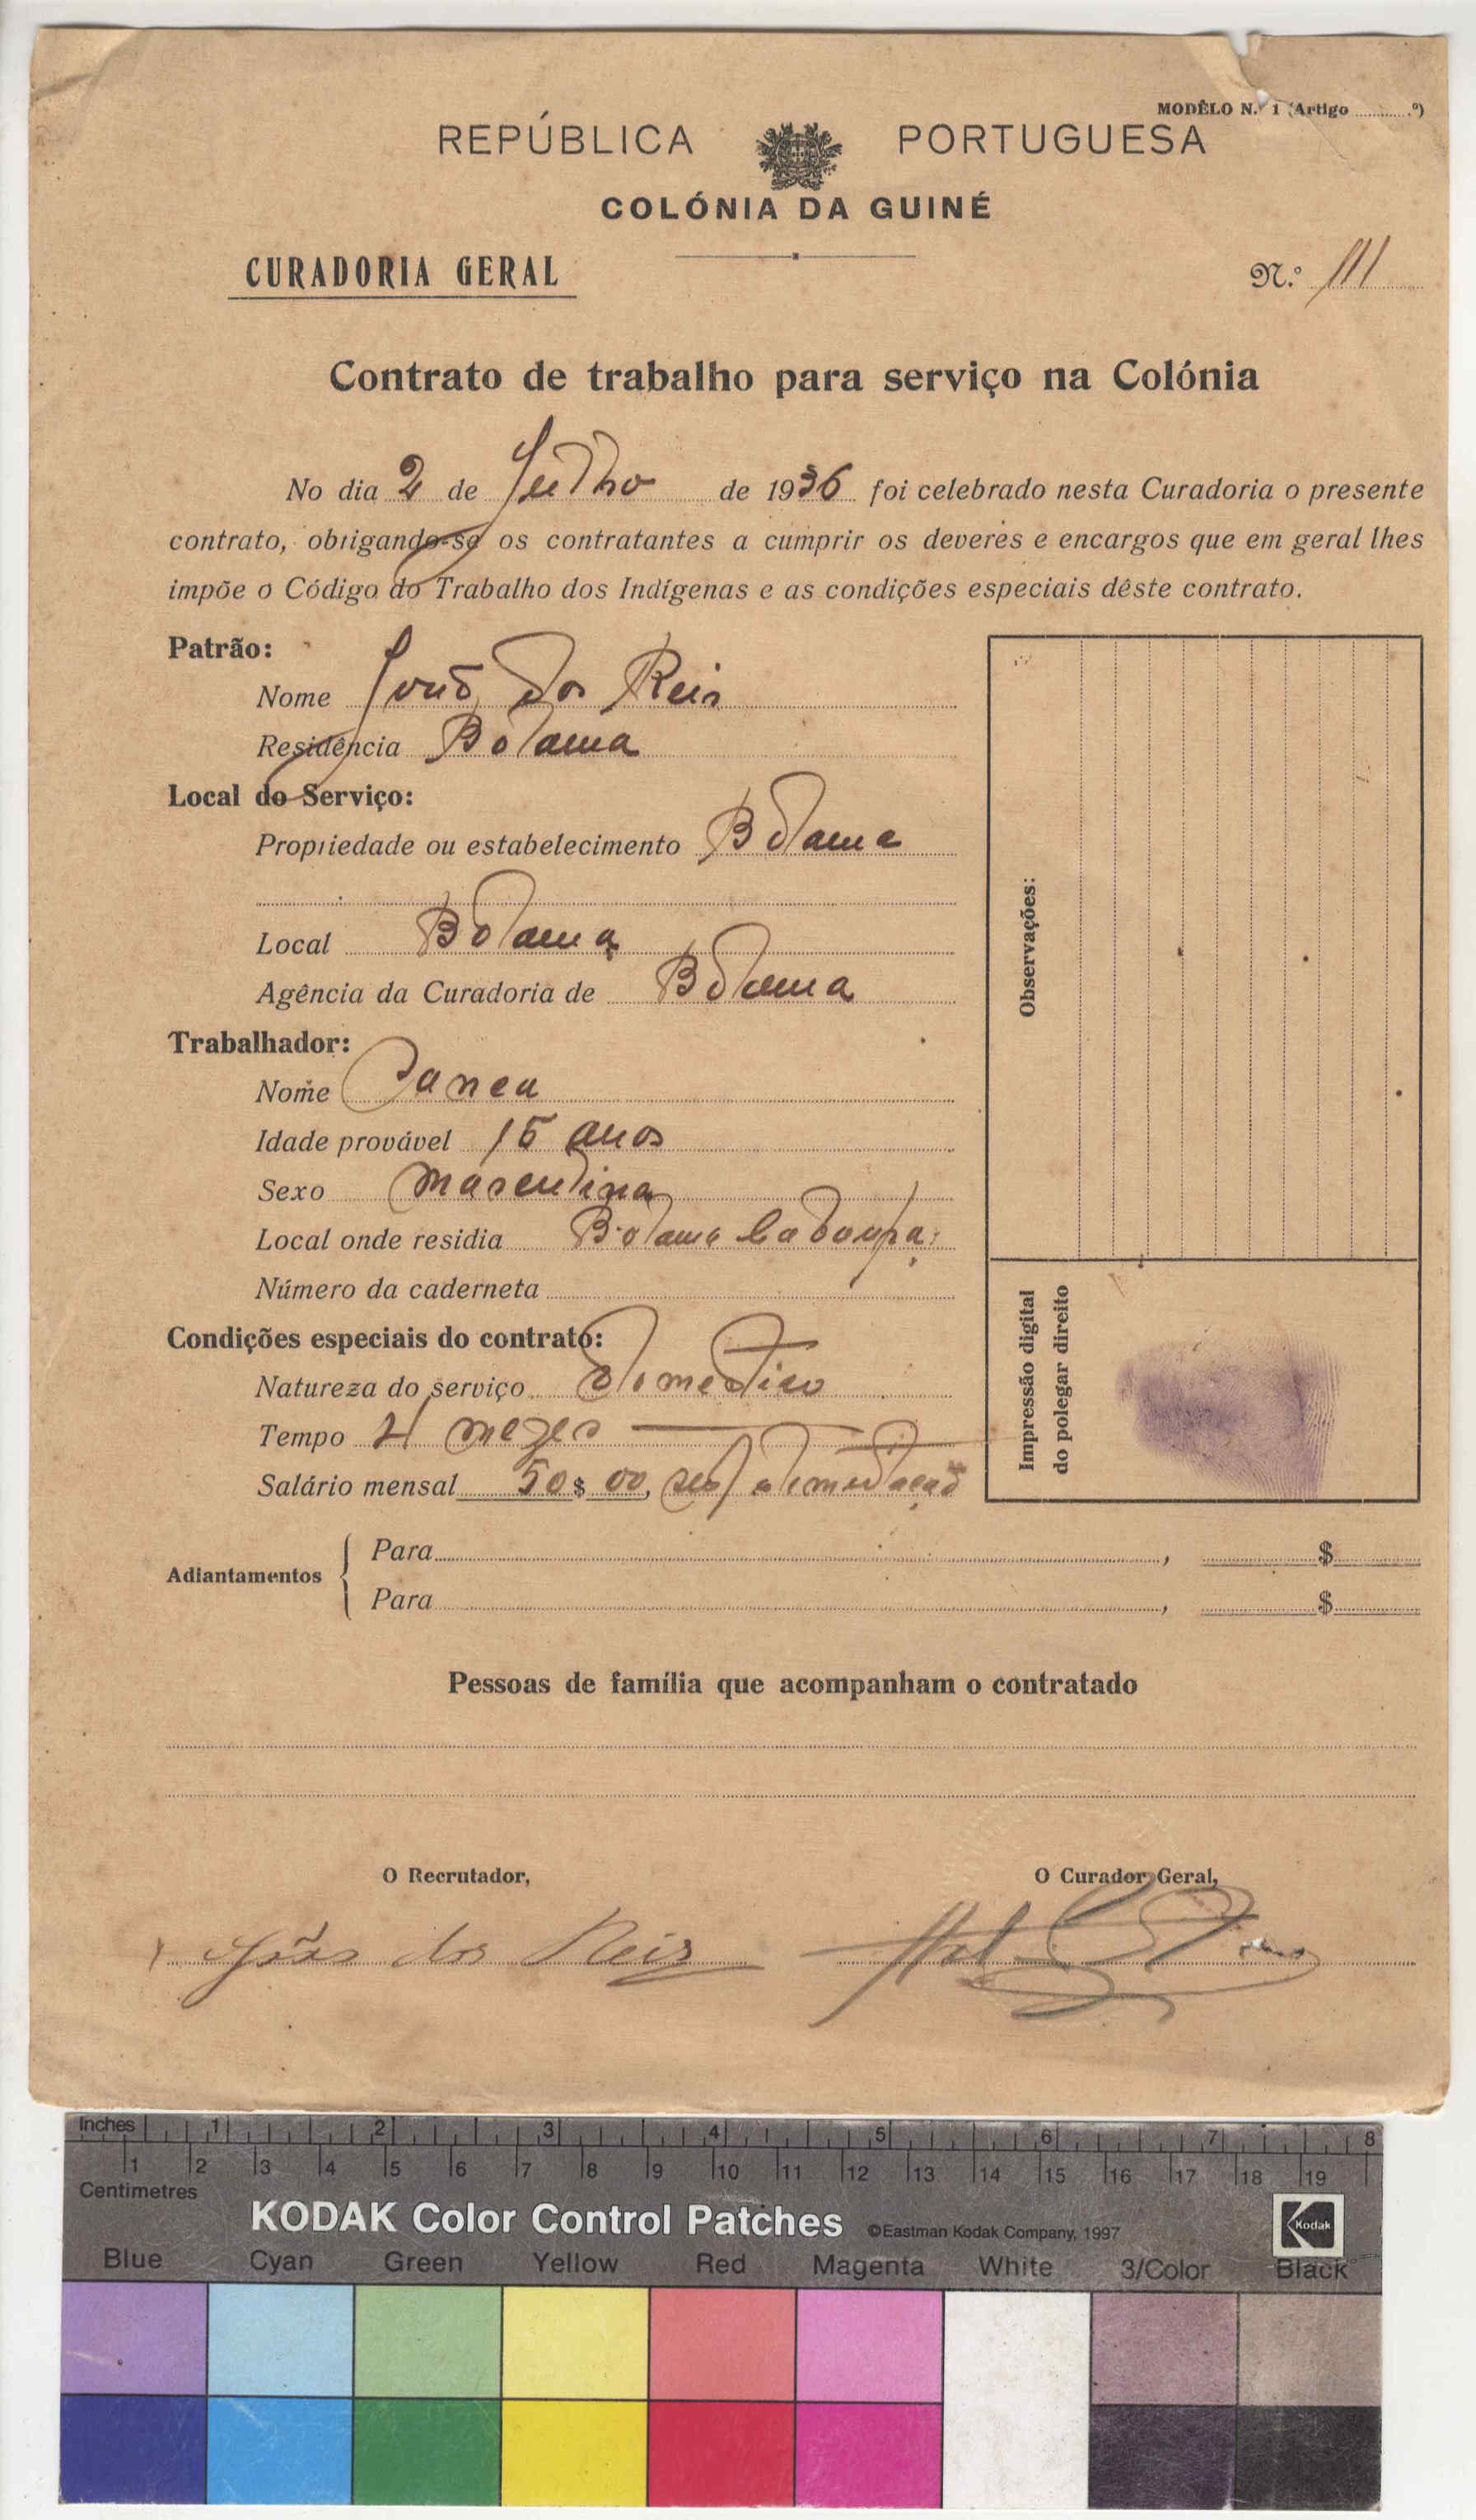 MODÊLO N.º 1 (Artigo ............º)
REPÚBLICA PORTUGUESA
COLÓNIA DA GUINÉ
CURADORIA GERAL
N.º 111
Contrato de trabalho para serviço na Colónia
No dia 2 de Julho de 1936 foi celebrado nesta Curadoria o presente
contrato, obrigando-se os contratantes a cumprir os deveres e encargos que em geral lhes
impõe o Código do Trabalho dos Indígenas e as condições especiais dêste contrato.
Patrão:
Nome João dos Reis
Residência Bolama
Local do Serviço:
Propriedade ou estabelecimento Bolama
Local Bolama
Agência da Curadoria de Bolama
Trabalhador:
Nome
Idade provável 15 anos
Sexo masculina
Local onde residia Bolama
Número da caderneta
Condições especiais do contrato:
Natureza do serviço domestico
Tempo 4 mezes
Salário mensal 50$00,
Observações:
Impressão digital
do polegar direito
Adiantamentos
Para , $
Para , $
Pessoas de família que acompanham o contratado
O Recrutador,
O Curador Geral,
João dos Reis
Inches 1 2 3 4 5 6 7 8
1 2 3 4 5 6 7 8 9 10 11 12 13 14 15 16 17 18 19
Centimetres
KODAK Color Control Patches ©Eastman Kodak Company, 1997 Kodak
Blue Cyan Green Yellow Red Magenta White 3/Color Black